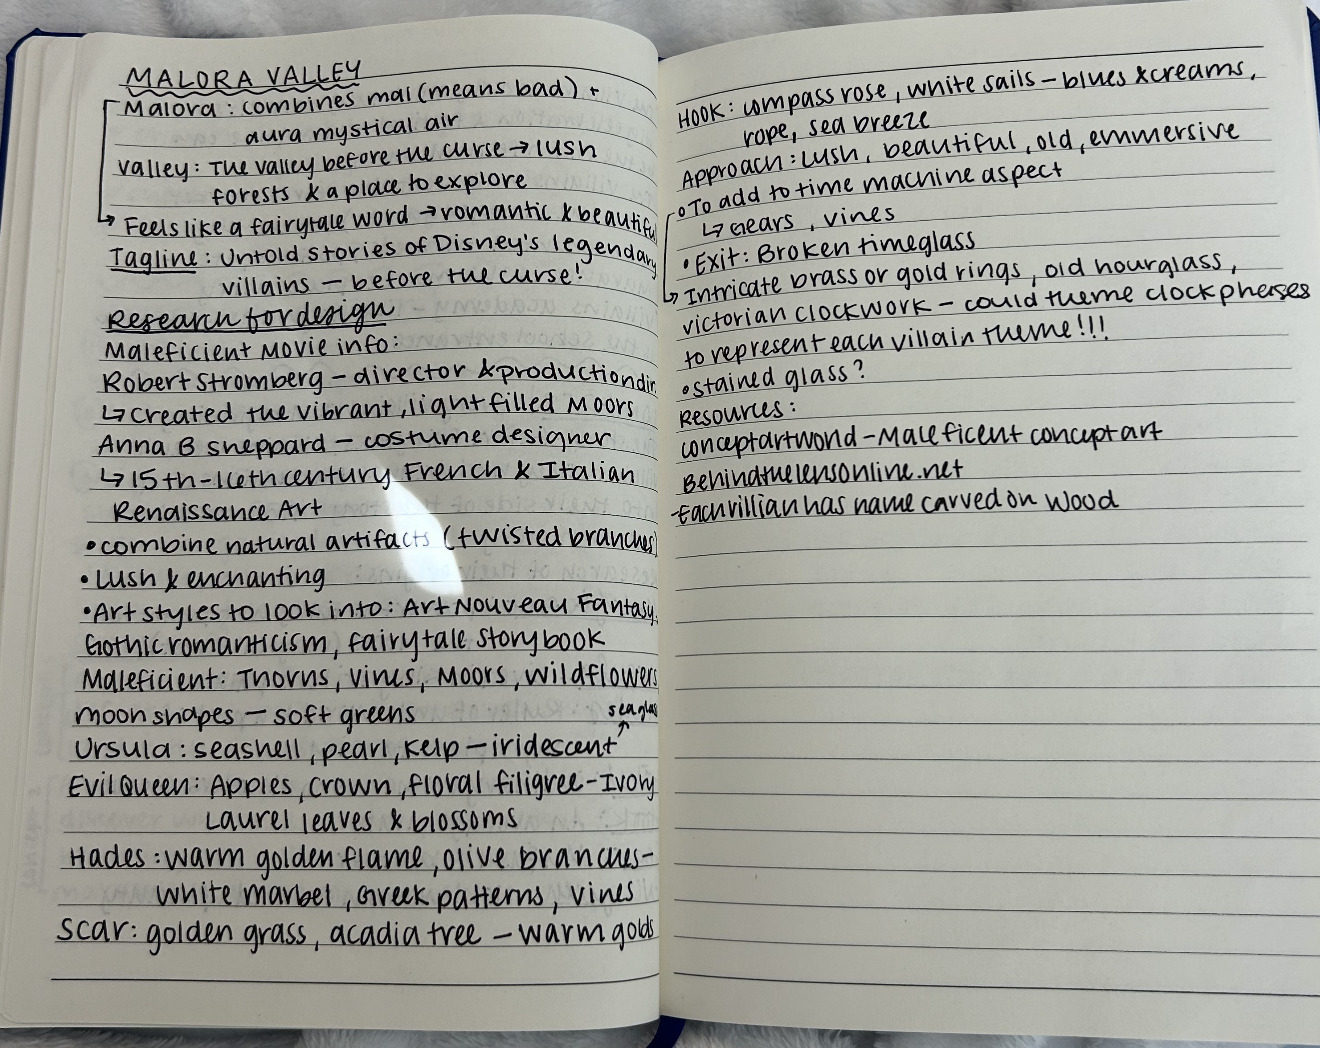 MALORA VALLEY
Malora : combines mal (means bad) +
aura mystical air
Valley : The valley before the curse → lush
forests & a place to explore
↳ Feels like a fairytale word → romantic & beautiful
Tagline : Untold stories of Disney's legendary
villains — before the curse!
Research for design
Maleficient Movie info:
Robert Stromberg — director & production dir
↳ created the vibrant, light filled Moors
Anna B Sheppard — costume designer
↳ 15th-16th century French & Italian
Renaissance Art
• combine natural artifacts (twisted branches)
• Lush & enchanting
• Art styles to look into: Art Nouveau Fantasy,
Gothic romanticism, fairytale storybook
Maleficient: Thorns, vines, Moors, wildflowers
moon shapes — soft greens
sea glass
Ursula : seashell, pearl, kelp — iridescent
Evil Queen: Apples, crown, floral filigree — Ivory
Laurel leaves & blossoms
Hades : warm golden flame, olive branches —
white marbel, Greek patterns, vines
Scar : golden grass, acadia tree — warm golds
HOOK : compass rose, white sails — blues & creams,
rope, sea breeze
Approach : Lush, beautiful, old, emmersive
• To add to time machine aspect
↳ Gears, vines
• Exit: Broken timeglass
↳ Intricate brass or gold rings, old hourglass,
victorian clockwork — could theme clock pherses
to represent each villain theme!!!
• stained glass?
Resources:
conceptartworld — Maleficent concept art
Behindthelensonline.net
-Each villian has name carved on wood